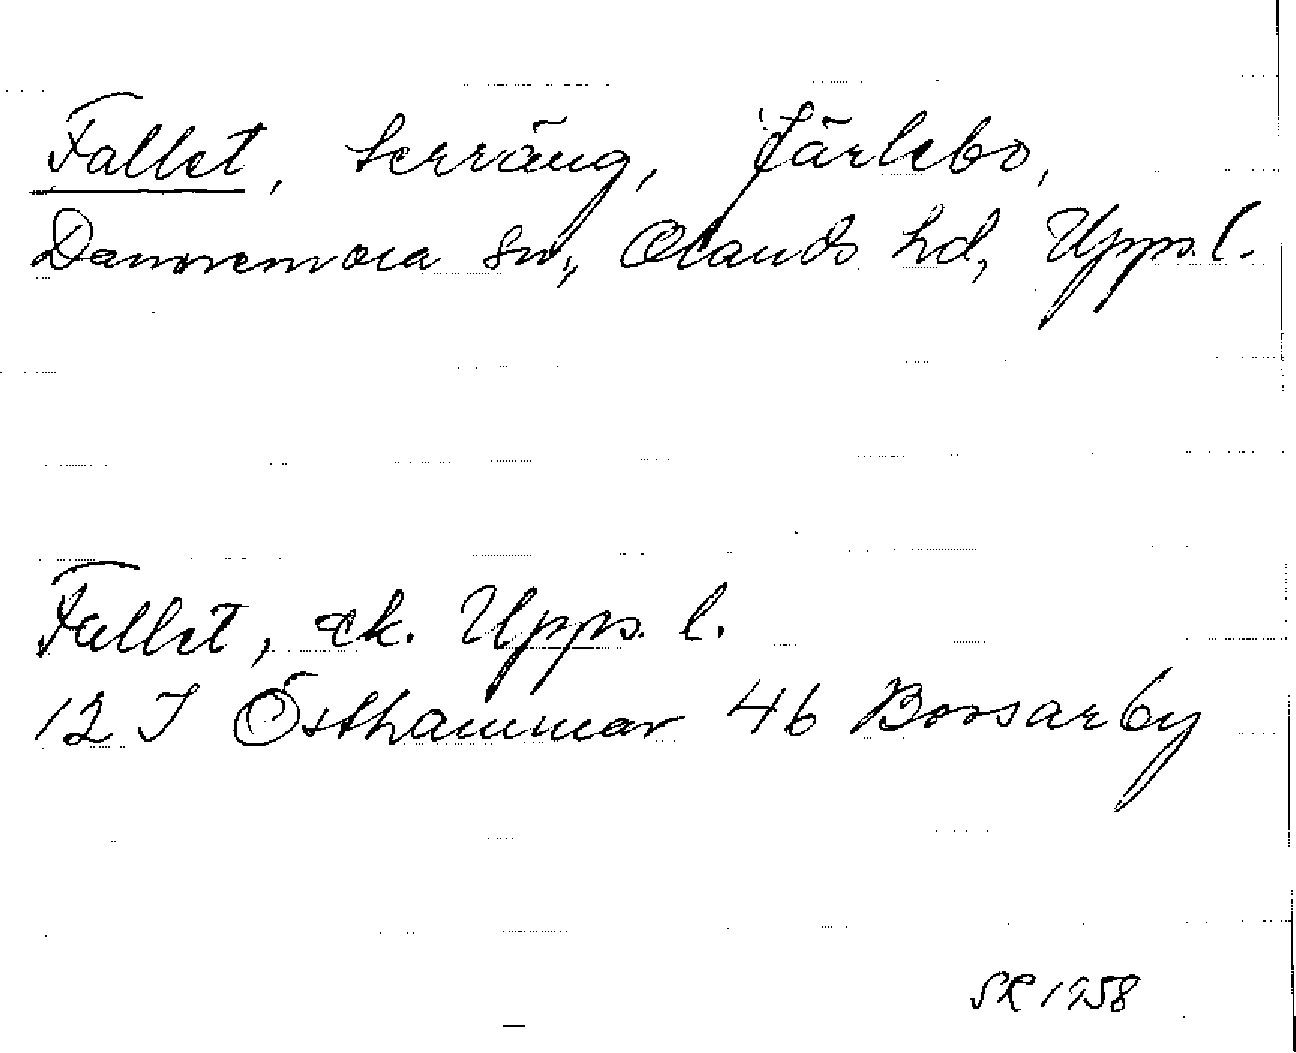 Fallet, terräng, Järlebo,
Dannemora sn, Olands hd, Upps. l.
Fallet, ek. Upps. l.
12 I Östhammar 4b Boosarby
SR 1958